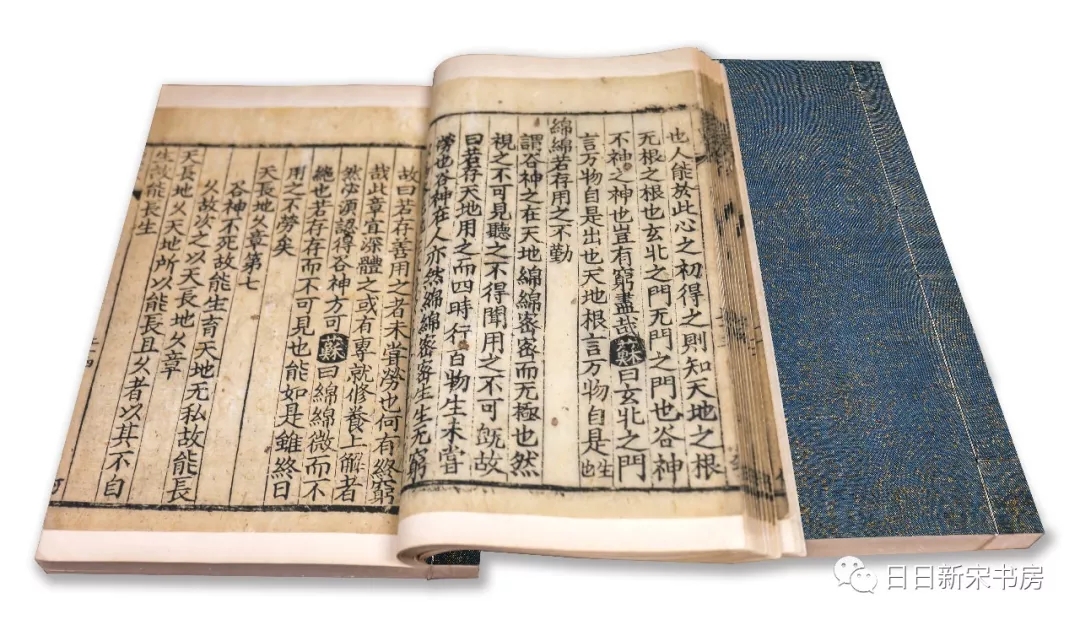 也人能扵此心之初得之則知天地之根
无根之根也玄北之門无門之門也谷神
不神之神也豈有窮盡哉蘇曰玄北之門
言万物自是出也天地根言万物自是生也
綿綿若存用之不勤
謂谷神之在天地綿綿密密而无極也然
視之不可見聽之不得聞用之不可旣故
曰若存天地用之而四時行百物生未甞
勞也谷神在人亦然綿綿密密生生无窮
故曰若存善用之者未甞勞也何有終窮
哉此章宜深體之或有專就修養上解者
然必須認得谷神方可蘇曰綿綿微而不
絶也若存存而不可見也能如是雖終日
用之不勞矣
天長地乆章第七
谷神不死故能生育天地无私故能長
乆故次之以天長地乆章
天長地乆天地所以能長且乆者以其不自
生故能長生
日日新宋书房